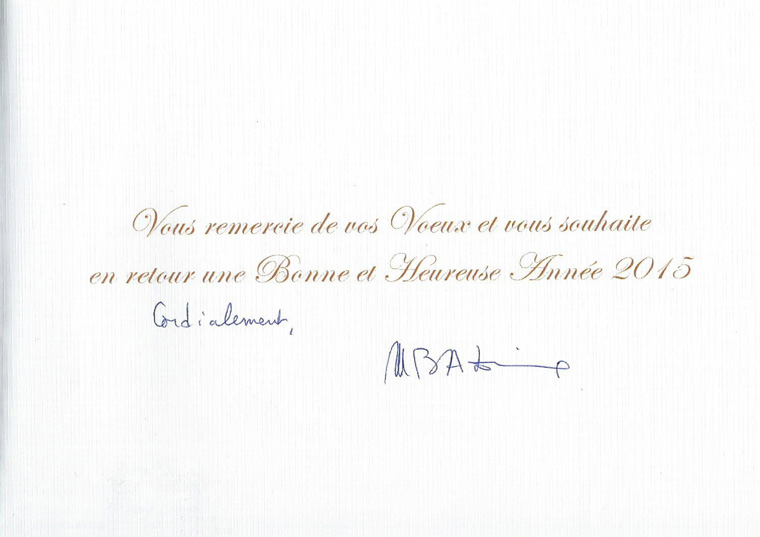 Vous remercie de vos Voeux et vous souhaite
en retour une Bonne et Heureuse Année 2015
Cordialement,